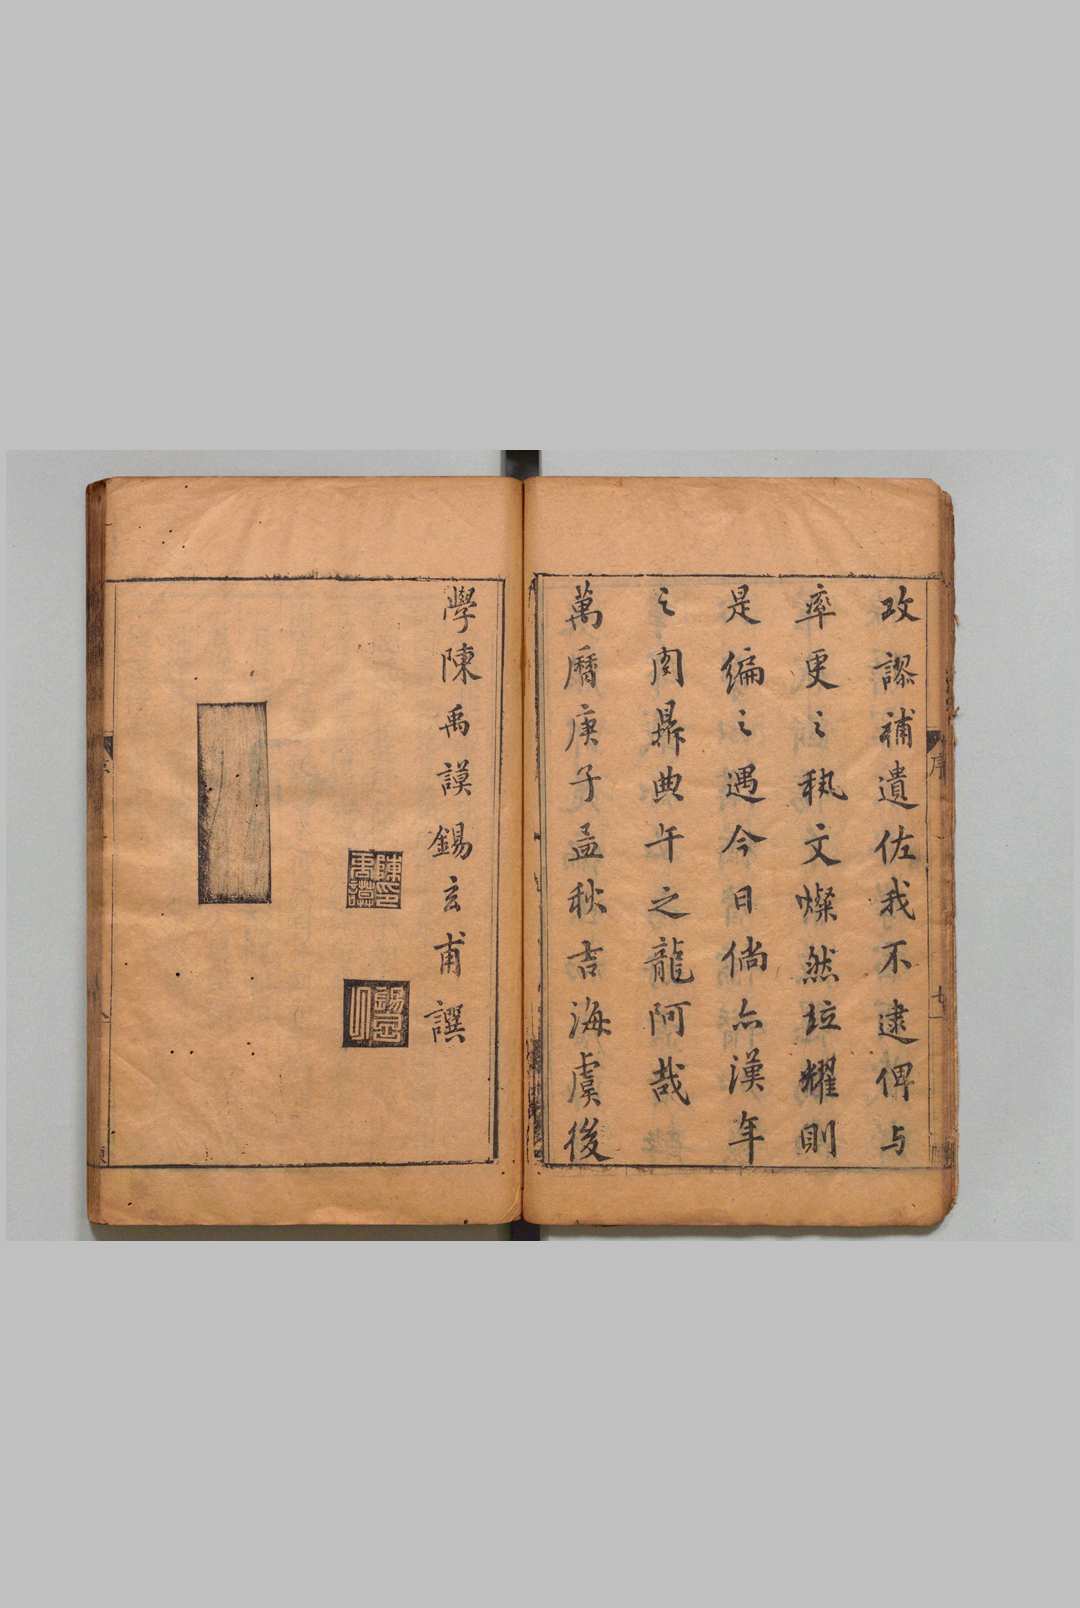 攷謬補遺佐我不逮俾与
率更之執文燦然竝耀則
是编之遇今日倘亦漢年
之囿鼎典午之龍阿哉
萬曆庚子孟秋吉海虞後
學陳禹謨錫玄甫譔
陳印禹謨
序
七